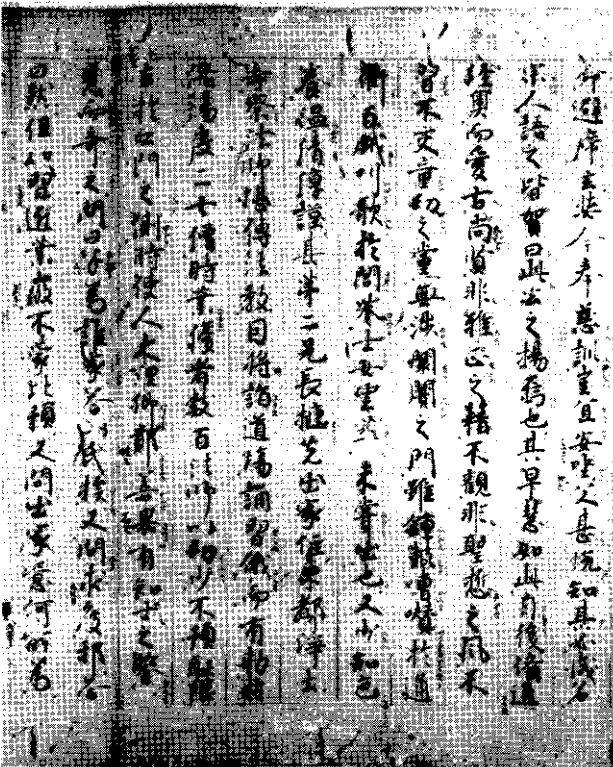 命避席玄奘今奉慈訓豈宜安坐父甚悅知其必成召
宗人語之皆賀曰此公之揚烏也其早慧如此自後備通
經奧而愛古尚賢非雅正之籍不觀非聖哲之風不
習不交童幼之黨無涉闤闠之門雖鍾鼓嘈囋於通
衢百戲叫歌於閭巷士女雲萃未嘗出也又少知色
養溫清淳謹其第二兄長捷先出家住東都淨土
寺察法師堪傳法教因將詣道場誦習俄而有勅於
洛陽度二七僧時業優者數百法師以幼少不預取限
立於公門之側時使人大理卿鄭善果有知士之鑒
見而奇之問曰子為誰家答以氏族又問求度耶答
曰然但以習近業微不蒙比預又問出家意何所為